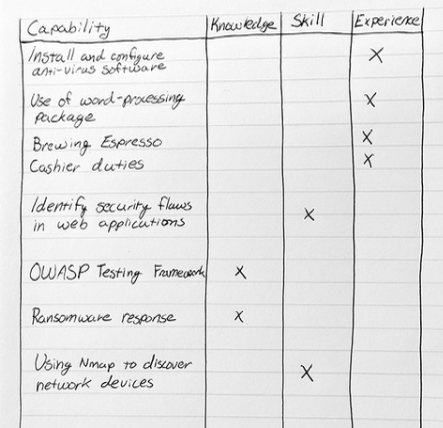 Capability Knowledge Skill Experience
Install and configure X
anti-virus software
Use of word-processing X
package
Brewing Espresso X
Cashier duties X
Identify security flaws X
in web applications
OWASP Testing Framework X
Ransomware response X
Using Nmap to discover X
network devices